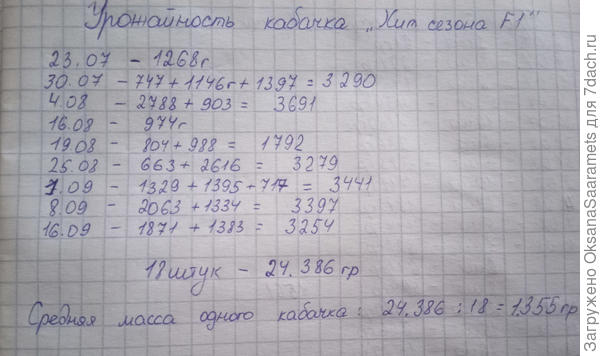 Урожайность кабачка „Хит сезона F1"
23.07 - 1268г
30.07 - 747 + 1146г + 1397 = 3290
4.08 - 2788 + 903 = 3691
16.08 - 974г
19.08 - 804 + 988 = 1792
25.08 - 663 + 2616 = 3279
1.09 - 1329 + 1395 + 717 = 3441
8.09 - 2063 + 1334 = 3397
16.09 - 1871 + 1383 = 3254
18 штук - 24.386 гр
Средняя масса одного кабачка: 24.386 : 18 = 1355 гр
Загружено OksanaSaaramets для 7dach.ru